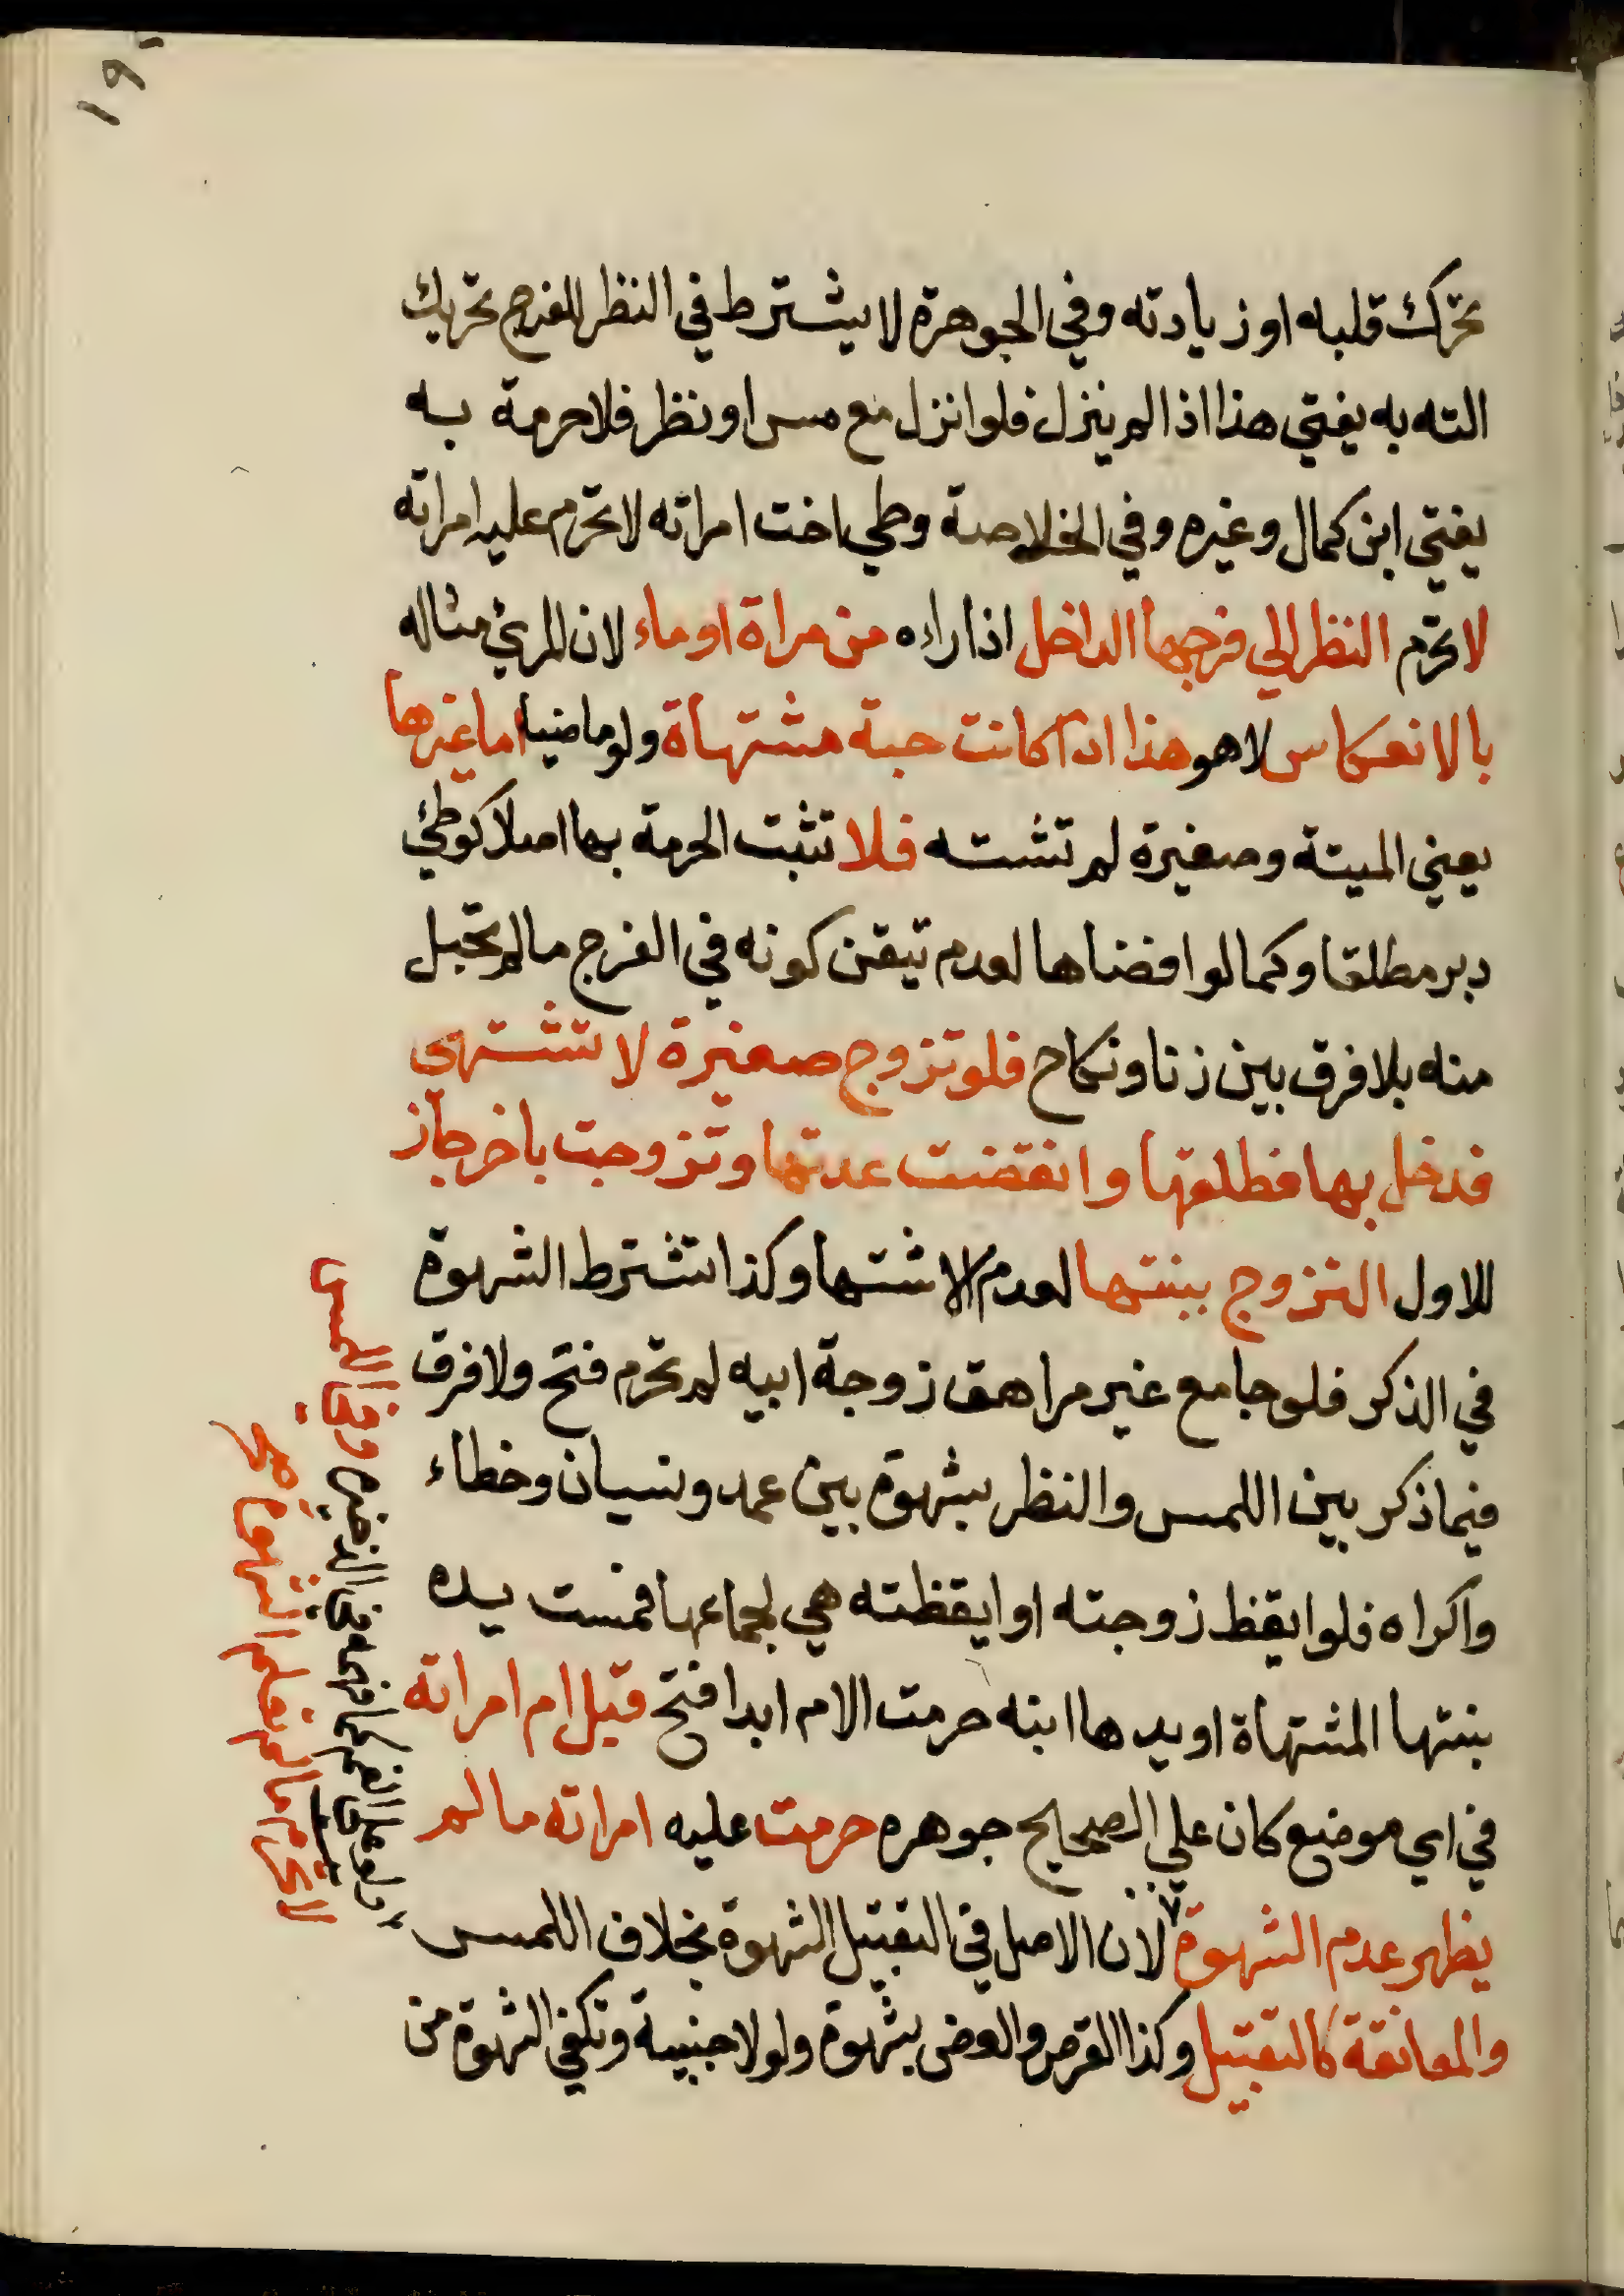 ١٩٠
تحرك قلبه او زيادته وفي الجوهرة لا يشترط في النظر للفرج تحريك
الته به يفتي هذا اذا لم ينزل فلو انزل مع مس او نظر فلا حرمة به
يفتي ابن كمال وغيره وفي الخلاصة وطي اخت امراته لا تحرم عليه امراته
لا تحرم النظر الي فرجها الداخل اذا راه من مراة او ماء لان المرئ مثاله
بالانعكاس لا هو هذا اذا كانت حية مشتهاة ولو ماضيا اما غيرها
يعني الميتة وصغيرة لم تشته فلا تثبت الحرمة بها اصلا كوطئ
دبر مطلقا وكما لو افضاها لعدم تيقن كونه في الفرج ما لم تحبل
منه بلا فرق بين زنا ونكاح فلو تزوج صغيرة لا تشتهي
فدخل بها فطلقها وانقضت عدتها وتزوجت باخر جاز
للاول التزوج ببنتها لعدم الاشتها وكذا تشترط الشهوة
في الذكر فلو جامع غير مراهق زوجة ابيه لم تحرم فتح ولا فرق
فيما ذكر بين اللمس والنظر بشهوة بين عمد ونسيان وخطاء
واكراه فلو ايقظ زوجته او ايقظته هي لجماعها فمست يده
بنتها المشتهاة او يدها ابنه حرمت الام ابدا فتح قبل ام امراته
في اي موضع كان علي الصحيح جوهره حرمت عليه امراته ما لم
يظهر عدم الشهوة لان الاصل في التقبيل الشهوة بخلاف اللمس
والمعانقة كالتقبيل وكذا القرص والعض بشهوة ولو لاجنبية وتكفي الشهوة من
ولو علي الفم كما فهمه في الذخيرة وفي المس
لا تحرم ما لم تعلم الشهوة صح